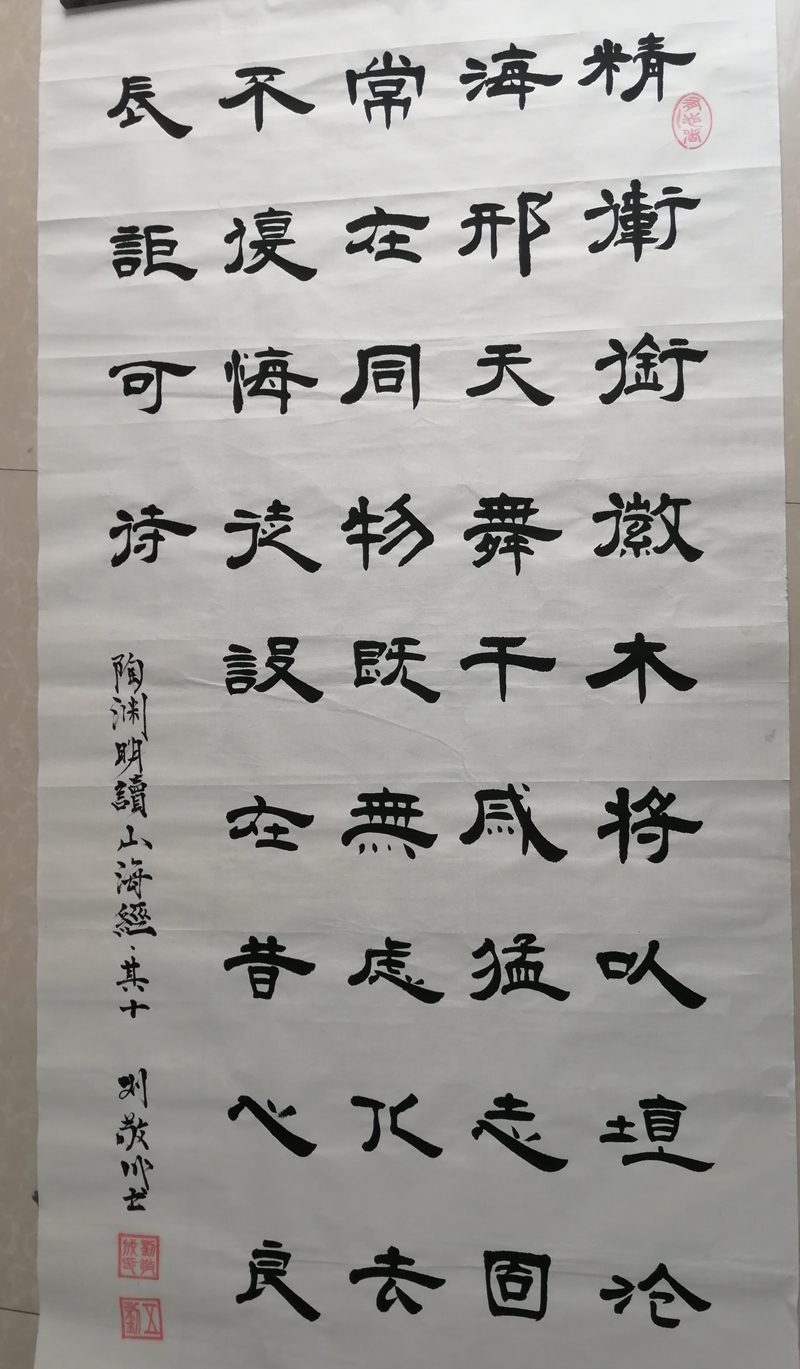 精衛銜徽木将以填沧
海邢天舞干戚猛志固
常在同物既無虑化去
不復悔徒設在昔心良
辰詎可待
陶渊明讀山海經、其十 刘敬书